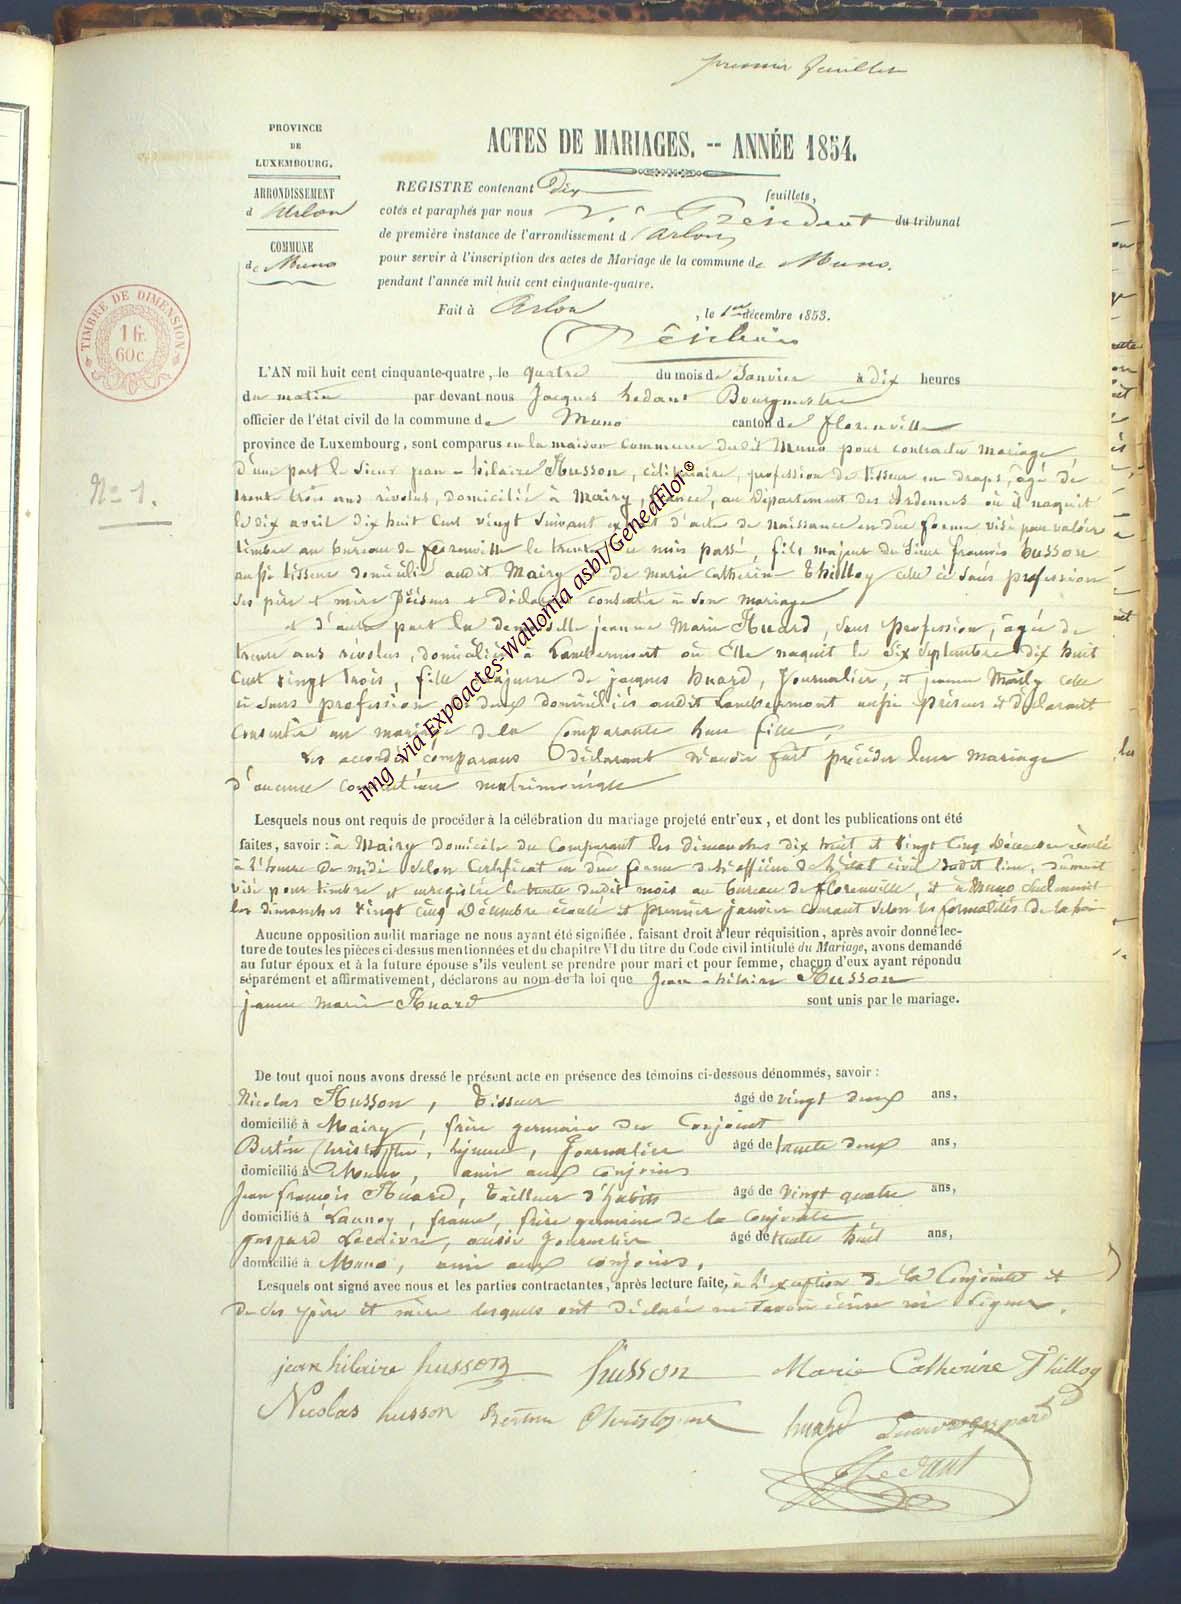 premier feuillet
PROVINCE
DE
LUXEMBOURG.
ARRONDISSEMENT
d'Arlon
COMMUNE
de Muno
TIMBRE DE DIMENSION
1 fr.
60 c.
ACTES DE MARIAGES. -- ANNÉE 1854.
REGISTRE contenant Dix feuillets,
cotés et paraphés par nous V. Président du tribunal
de première instance de l'arrondissement d'Arlon
pour servir à l'inscription des actes de Mariage de la commune de Muno.
pendant l'année mil huit cent cinquante-quatre.
Fait à Arlon, le 1er décembre 1853.
No 1.
L'AN mil huit cent cinquante-quatre, le quatre du mois de Janvier à dix heures
du matin par devant nous Jacques hedant Bourgmestre
officier de l'état civil de la commune de Muno canton de florenville
province de Luxembourg, sont comparus en la maison Commune dudit Muno pour contracter mariage
d'une part le sieur jean-hilaire Husson, célibataire, profession de tisseur en draps, âgé de
trente trois ans révolus, domicilié à Mairy, france, au département des ardennes où il naquit
le dix avril dix huit cent vingt suivant extrait d'acte de naissance en due forme visé pour valoir
timbre au bureau de florenville le trente du mois passé, fils majeur du Sieur françois husson
aussi tisseur domicilié audit Mairy et de marie catherine Thilloy celle ci sans profession
ses père et mère présens et déclarant consentir à son mariage
et d'autre part la demoiselle jeanne Marie Huard, sans profession, âgée de
trente ans révolus, domiciliée à Lambermont où Elle naquit le six septembre dix huit
cent vingt trois, fille majeure de jacques huard, journalier, et jeanne Mailly celle
ci sans profession et deux domiciliés audit Lambermont aussi présens et déclarant
consentir au mariage de la Comparante leur fille,
Les accordés comparans déclarant n'avoir fait précéder leur mariage
d'aucune convention matrimoniale
Lesquels nous ont requis de procéder à la célébration du mariage projeté entr'eux, et dont les publications ont été
faites, savoir: à Mairy domicile du Comparant les dimanches dix huit et vingt cinq Décembre écoulé
à l'heure de midi selon certificat en due forme de l'officier de l'état civil dudit lieu, dûment
visé pour timbre et enregistré le trente dudit mois au bureau de florenville, et à Muno seulement
les dimanches vingt cinq décembre écoulé et premier janvier courant selon les formalités de la loi
Aucune opposition audit mariage ne nous ayant été signifiée, faisant droit à leur réquisition, après avoir donné lec-
ture de toutes les pièces ci-dessus mentionnées et du chapitre VI du titre du Code civil intitulé du Mariage, avons demandé
au futur époux et à la future épouse s'ils veulent se prendre pour mari et pour femme, chacun d'eux ayant répondu
séparément et affirmativement, déclarons au nom de la loi que Jean-hilaire Husson
jeanne marie Huard sont unis par le mariage.
De tout quoi nous avons dressé le présent acte en présence des témoins ci-dessous dénommés, savoir:
Nicolas Husson, Tisseur âgé de vingt deux ans,
domicilié à Mairy, frère germain du Conjoint
Berton Christophe, Journalier âgé de trente deux ans,
domicilié à Muno, ami aux conjoins
Jean françois Huard, tailleur d'habits âgé de vingt quatre ans,
domicilié à Launoy, france, frère germain de la conjointe
gaspard Lecuivre, aussi journalier âgé de trente huit ans,
domicilié à Muno, ami aux conjoins,
Lesquels ont signé avec nous et les parties contractantes, après lecture faite, à l'exception de la Conjointe et
de ses père et mère lesquels ont déclaré ne savoir écrire ni signer.
jean hilaire husson husson Marie Catherine Thilloy
Nicolas husson Berton Christophe huard gaspard
JHedant
img via Expoactes-Wallonia asbl/GeneaFlor©